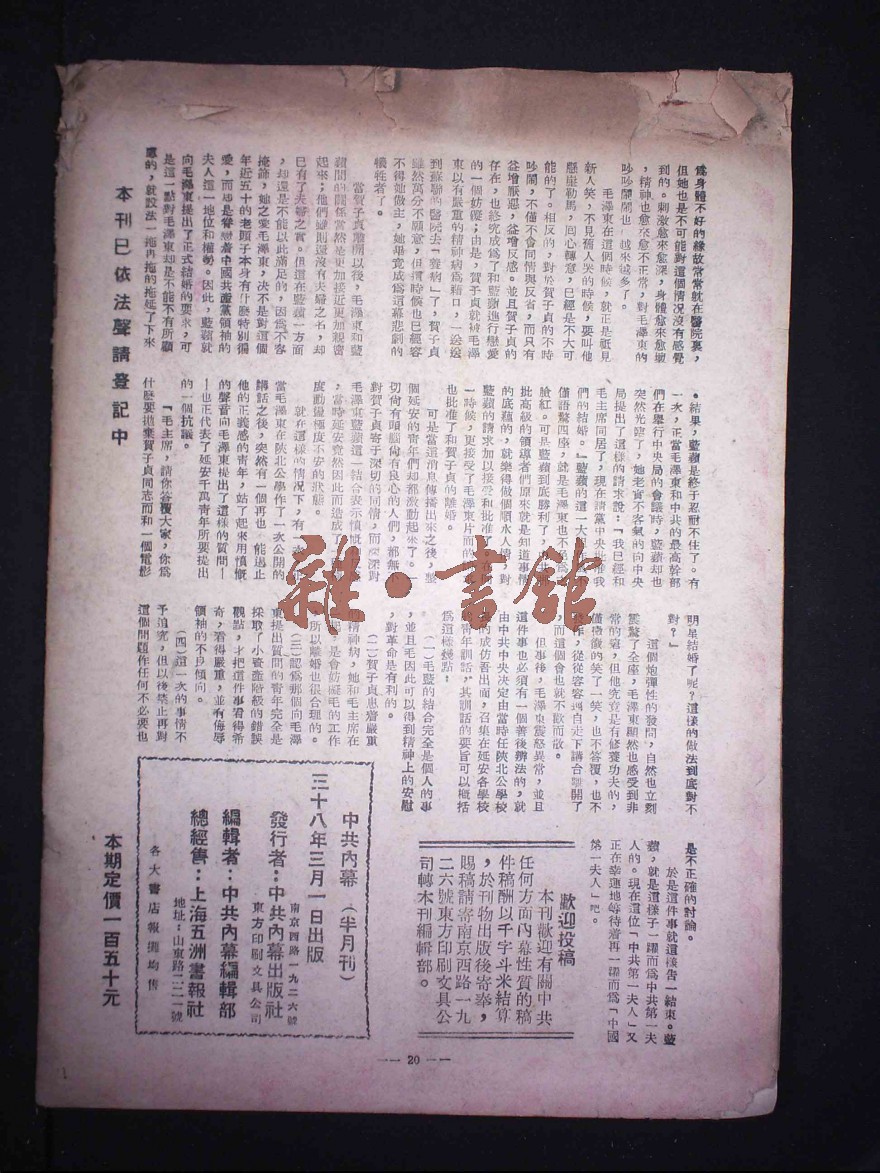 爲身體不好的緣故常常就在醫院裏,
但她也是不可能對這個情況沒有感覺
到的。刺激愈來愈深,身體愈來愈壞
,精神也愈來愈不正常,對毛澤東的
吵吵鬧鬧也 越來越多了。
毛澤東在這個時候,就正是祇見
新人笑,不見舊人哭的時候,要叫他
懸崖勒馬,囘心轉意,已經是不大可
能的了。相反的,對於賀子貞的不時
吵鬧,不僅不會同情與反省,而只有
益增厭迎,益增反感。並且賀子貞的
存在,也終究成爲了和藍蘋進行戀愛
的一個妨礙;由是,賀子貞就被毛澤
東以有嚴重的精神病爲藉口,一送送
到蘇聯的醫院去「養病」了,賀子貞
雖然萬分不願意,但這時候也已經容
不得她做主,她畢竟成爲這幕悲劇的
犧牲者了。
當賀子貞離開以後,毛澤東和藍
蘋間的關係當然是更加接近更加親密
起來;他們雖則還沒有夫婦之名,却
已有了夫婦之實。但這在藍蘋一方面
,却還是不能以此滿足的,因爲不容
掩飾,她之愛毛澤東,决不是對這個
年近五十的老頭子本身有什麽特別偏
愛,而却是眷戀着中國共產黨領袖的
夫人這一地位和權勢。因此,藍蘋就
向毛澤東提出了正式結婚的要求,可
是這一點對毛澤東却是不能不有所顧
慮的,就設法一拖再拖的拖延了下來
本刊已依法聲請登記中
。結果,藍蘋是終于忍耐不住了。有
一次,正當毛澤東和中共的最高幹部
們在舉行中央局的會議時,藍蘋却也
突然光臨了,她老實不客氣的向中央
局提出了這樣的請求說:「我已經和
毛主席同居了,現在請黨中央批准我
們的結婚。」藍蘋的這一大
僅語驚四座,就是毛澤東也不免
臉紅。可是藍蘋到底勝利了,
批高級的領導者們原來就是知道事情
的底蘊的,就樂得做個順水人情,對
藍蘋的請求加以接受和批准了,在同
一時候,更接受了毛澤東片面的
也批准了和賀子貞的離婚。
可是當這消息傳播出來之後,整
個延安的靑年們却都激動起來了。一
切尙有頭腦尙有良心的人們,都無不
對賀子貞寄于深切的同情,而
毛澤東藍蘋這一結合表示憤慨
,當時延安竟然因此而造成一
度動盪極度不安的狀態。
就在這樣的情况下,有一次,正
當毛澤東在陝北公學作了一次公開的
講話之後,突然有一個再也 能遏止
他的正義感的靑年,站了起來用憤慨
的聲音向毛澤東提出了這樣的質問—
—也正代表了延安千萬靑年所要提出
的一個抗議。
「毛主席,請你答覆大家,你爲
什麽要拋棄賀子貞同志而和一個電影
明星結婚了呢?這樣的做法到底對不
對?」
這個炮彈性的發問,自然也立刻
震驚了全座,毛澤東顯然也感受到非
常的窘,但他究竟是有修養功夫的,
僅微微的笑了一笑,也不答覆,也不
發作,從從容容 自走下講台離開了
,而這個會也就不歡而散。
但事後,毛澤東震怒異常,並且
這件事也必須有一個善後辦法的,就
由中共中央决定由當時任陝北公學校
長的成仿吾出面,召集在延安各學校
的靑年訓話,其訓話的要旨可以槪括
爲這樣幾點:
(一)毛藍的結合完全是個人的事
,並且毛因此可以得到精神上的安慰
,對革命是有利的。
(二)賀子貞患着嚴重
的精神病,她和毛主席在
一起,是會妨礙毛的工作
,所以離婚也很合理的。
(三)認爲那個向毛澤
東提出質問的靑年完全是
採取了小資產階級的錯誤
觀點,才把這件事看得希
奇,看得嚴重,並有侮辱
領袖的不良傾向。
(四)這一次的事情不
予追究,但以後禁止再對
這個問題作任何不必要也
是不正確的討論。
於是這件事就這樣吿一結束。藍
蘋,就是這樣子一躍而爲中共第一夫
人的。現在這位「中共第一夫人」又
正在幸運地等待着再一躍而爲「中國
第一夫人」吧。
歡迎投稿
本刊歡迎有關中共
任何方面內幕性質的稿
件稿酬以千字斗米結算
,於刊物出版後寄奉,
賜稿請寄南京西路一九
二六號東方印刷文具公
司轉本刊編輯部。
中共內幕(半月刊)
三十八年三月一日出版
發行者:中共內幕出版社
南京西路一九二六號
東方印刷文具公司
編輯者:中共內幕編輯部
總經售:上海五洲書報社
地址:山東路二二一號
各大書店報攤均售
本期定價一百五十元
— 20 —
雜·書館